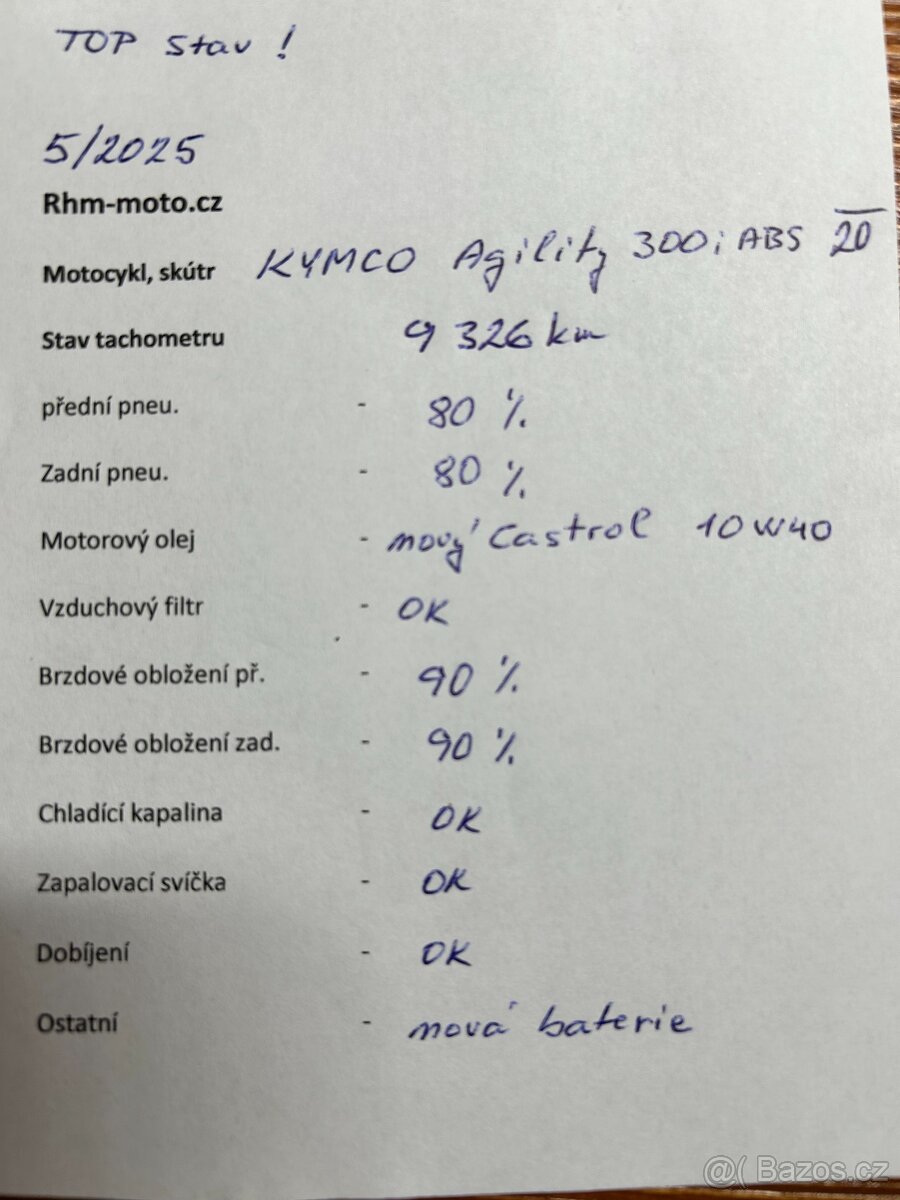 TOP stav !
5/2025
Rhm-moto.cz
Motocykl, skútr KYMCO Agility 300i ABS 20
Stav tachometru 9 326 km
přední pneu. - 80 %
Zadní pneu. - 80 %
Motorový olej - nový Castrol 10W40
Vzduchový filtr - OK
Brzdové obložení př. - 90 %
Brzdové obložení zad. - 90 %
Chladící kapalina - OK
Zapalovací svíčka - OK
Dobíjení - OK
Ostatní - nová baterie
@( Bazos.cz